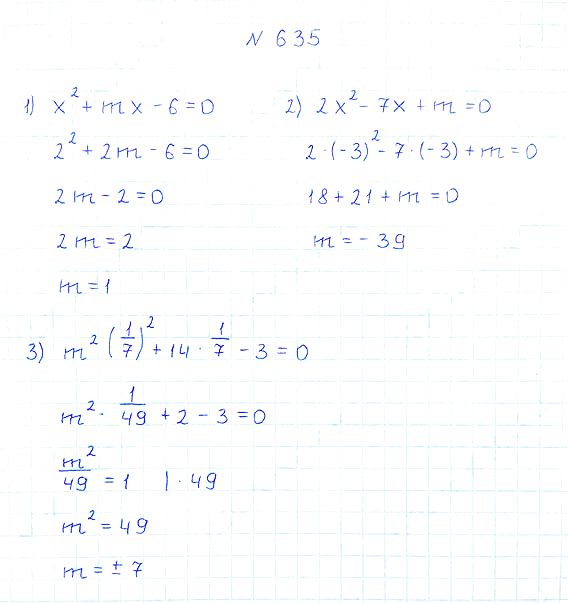 N 635
1) x² + mx - 6 = 0
2² + 2m - 6 = 0
2m - 2 = 0
2m = 2
m = 1
2) 2x² - 7x + m = 0
2 · (-3)² - 7 · (-3) + m = 0
18 + 21 + m = 0
m = - 39
3) m² (1/7)² + 14 · 1/7 - 3 = 0
m² · 1/49 + 2 - 3 = 0
m²/49 = 1 | · 49
m² = 49
m = ± 7